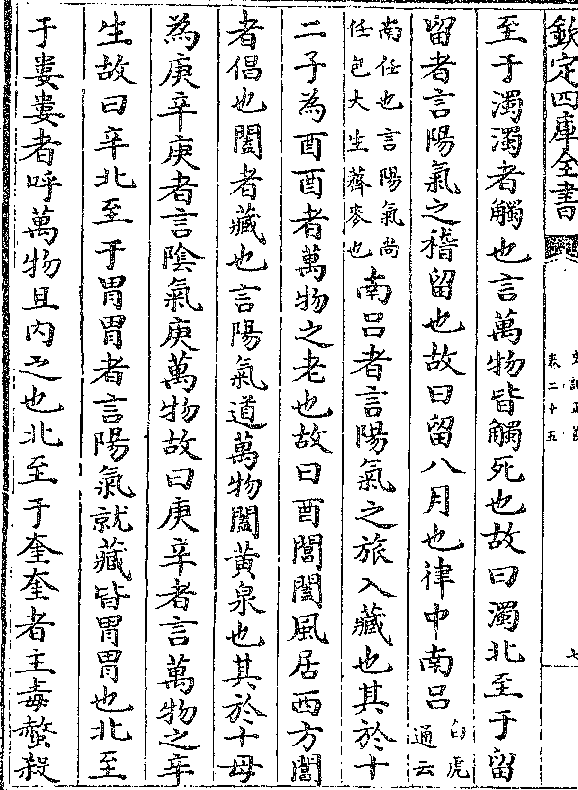 欽定四庫全書
至于濁濁者觸也言萬物皆觸死也故曰濁北至于留
留者言陽氣之稽留也故曰留八月也律中南呂白虎通云
南任也言陽氣尚任包大生薺麥也南呂者言陽氣之旅入藏也其於十
二子為酉酉者萬物之老也故曰酉閶闔風居西方閶
者倡也闔者藏也言陽氣道萬物闔黃泉也其於十母
為庚辛庚者言陰氣庚萬物故曰庚辛者言萬物之辛
生故曰辛北至于胃胃者言陽氣就藏皆胃胃也北至
于婁婁者呼萬物且內之也北至于奎奎者主毒螫殺